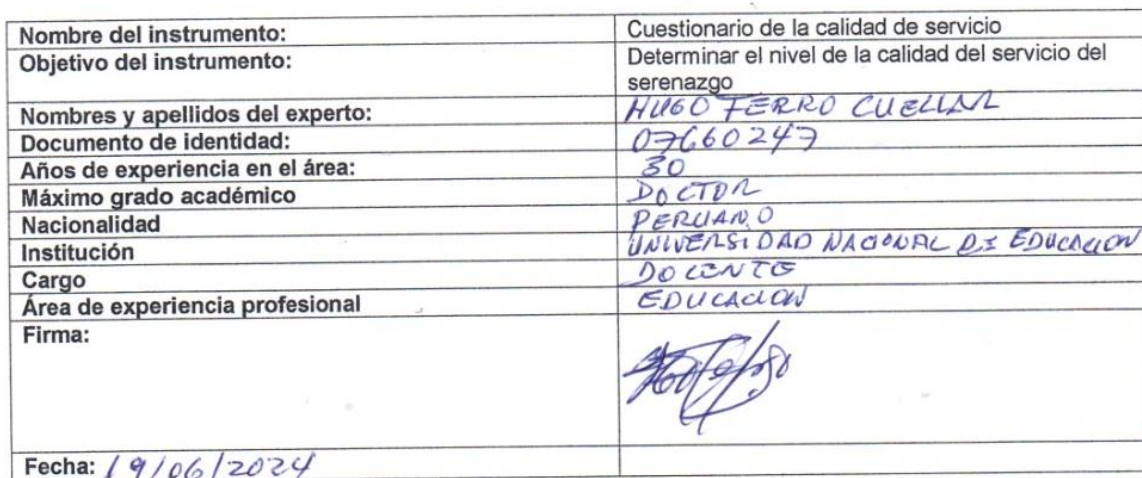 Nombre del instrumento: Cuestionario de la calidad de servicio
Objetivo del instrumento: Determinar el nivel de la calidad del servicio del
serenazgo
Nombres y apellidos del experto: HUGO FERRO CUELLAR
Documento de identidad: 07660247
Años de experiencia en el área: 30
Máximo grado académico DOCTOR
Nacionalidad PERUANO
Institución UNIVERSIDAD NACIONAL DE EDUCACION
Cargo DOCENTE
Área de experiencia profesional EDUCACION
Firma:
Fecha: 19/06/2024